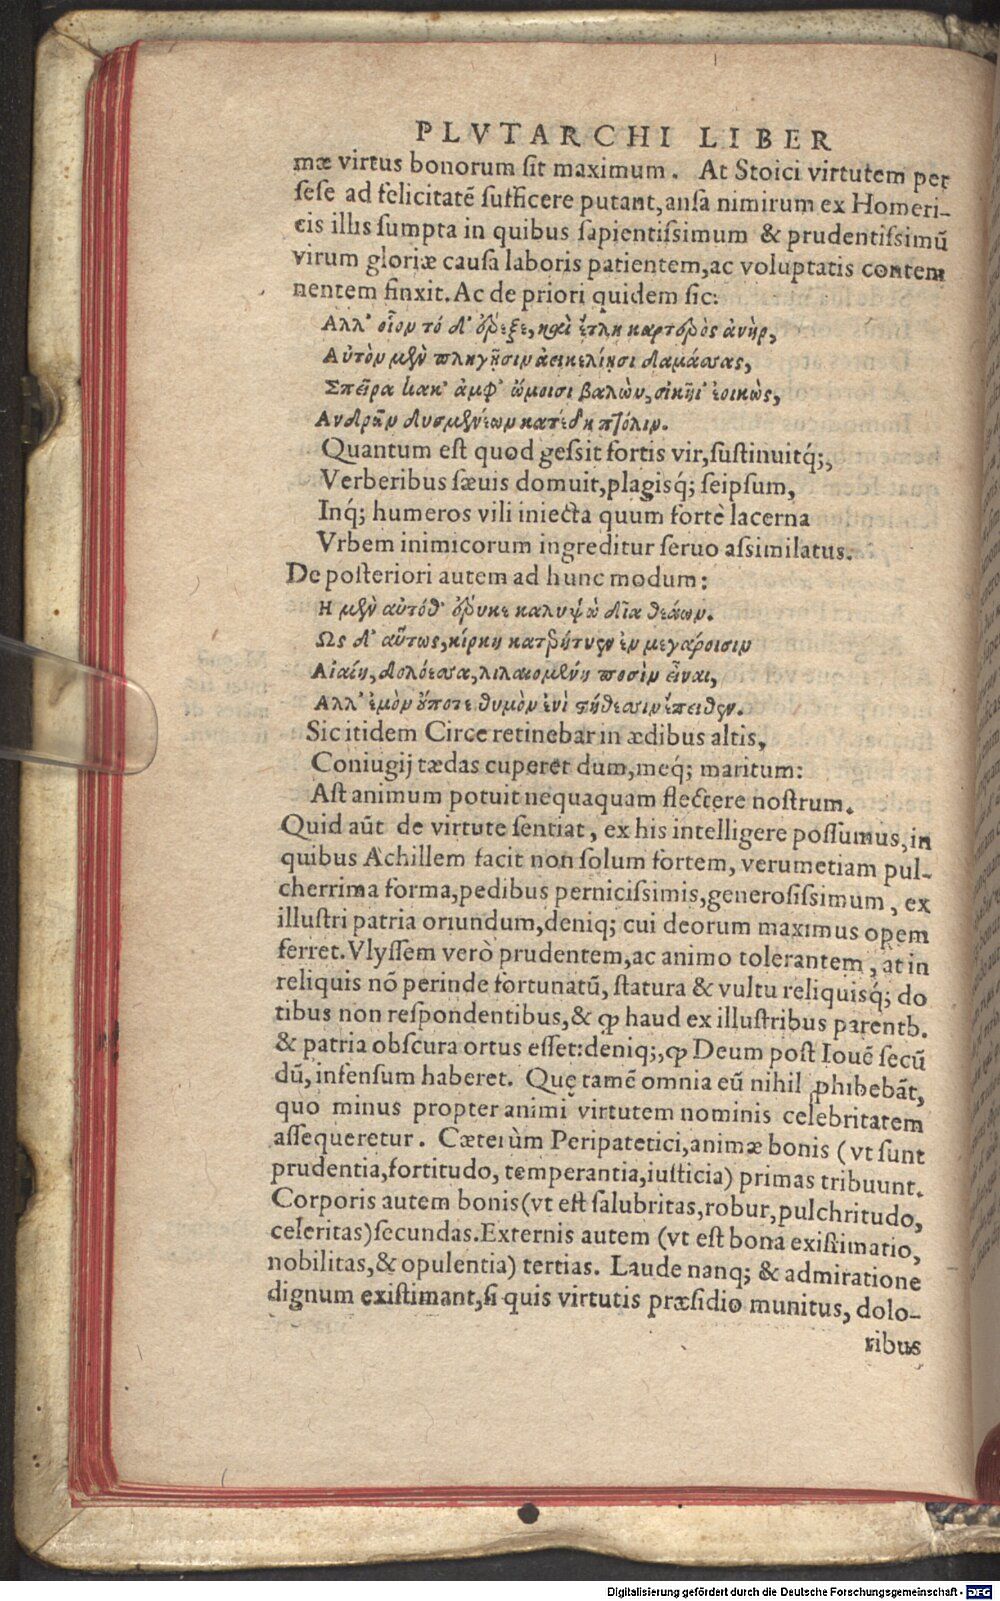 PLVTARCHI LIBER
mæ virtus bonorum ſit maximum. At Stoici virtutem per
ſeſe ad felicitatē ſufficere putant, anſa nimirum ex Homeri-
cis illis ſumpta in quibus ſapientiſsimum & prudentiſsimū
virum gloriæ cauſa laboris patientem, ac voluptatis contem
nentem finxit. Ac de priori quidem ſic:
Αλλ' οἷον τό δ' ἔρεξε, καὶ ἔτλη καρτερὸς ἀνὴρ,
Αὐτὸν μὲν πληγῇσιν ἀεικελίῃσι δαμάσσας,
Σπεῖρα κακ' ἀμφ' ὤμοισι βαλὼν, οἰκῆϊ ἐοικὼς,
Ανδρῶν δυσμενέων κατέδη πτόλιν.
Quantum eſt quod geſsit fortis vir, ſuſtinuitq́;,
Verberibus ſæuis domuit, plagisq́; ſeipſum,
Inq́; humeros vili iniecta quum fortè lacerna
Vrbem inimicorum ingreditur ſeruo aſsimilatus.
De poſteriori autem ad hunc modum:
Η μὲν αὐτόθ' ἔρυκε καλυψὼ δῖα θεάων.
Ως δ' αὔτως, κίρκη κατερήτυεν ἐν μεγάροισιν
Αἰαίη, δολόεσσα, λιλαιομένη ποσὶν εἶναι,
Αλλ' ἐμὸν οὔποτε θυμὸν ἐνὶ στήθεσσιν ἔπειθεν.
Sic itidem Circe retinebat in ædibus altis,
Coniugij tædas cuperet dum, meq́; maritum:
Aſt animum potuit nequaquam flectere noſtrum.
Quid aūt de virtute ſentiat, ex his intelligere poſſumus, in
quibus Achillem facit non ſolum fortem, verumetiam pul-
cherrima forma, pedibus perniciſsimis, generoſiſsimum, ex
illuſtri patria oriundum, deniq; cui deorum maximus opem
ferret. Vlyſſem verò prudentem, ac animo tolerantem, at in
reliquis nō perinde fortunatū, ſtatura & vultu reliquisq́; do
tibus non reſpondentibus, & ꝙ haud ex illuſtribus parentb.
& patria obſcura ortus eſſet: deniq;, ꝙ Deum poſt Iouē ſecū
dū, infenſum haberet. Quę tamē omnia eū nihil ꝓhibebāt,
quo minus propter animi virtutem nominis celebritatem
aſſequeretur. Cæterùm Peripatetici, animæ bonis (vt ſunt
prudentia, fortitudo, temperantia, iuſticia) primas tribuunt.
Corporis autem bonis (vt eſt ſalubritas, robur, pulchritudo,
celeritas) ſecundas. Externis autem (vt eſt bona exiſtimatio,
nobilitas, & opulentia) tertias. Laude nanq; & admiratione
dignum exiſtimant, ſi quis virtutis præſidio munitus, dolo-
ribus
Digitalisierung gefördert durch die Deutsche Forschungsgemeinschaft - DFG